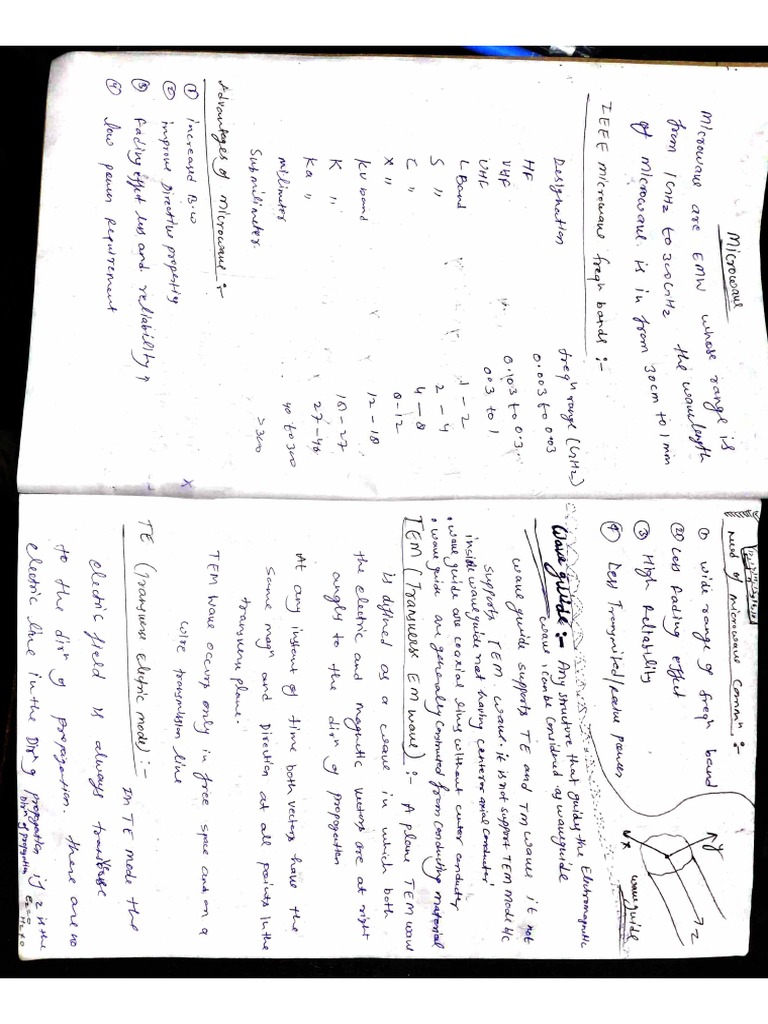 Microwave
Microwave are EMW whose range is
from 1GHz to 300GHz the wavelength
of microwave is in from 30cm to 1mm
IEEE microwave freqn bands :-
Designation freqn range (GHz)
HF 0.003 to 0.03
VHF
UHF 0.3 to 1
L Band 1 - 2
S " 2 - 4
C " 4 - 8
X " 8 - 12
KU band 12 - 18
K " 18 - 27
Ka " 27 - 40
milimeter 40 to 300
Submilimeter. >300
Advantages of microwave :-
① increased B.W
② improve Directive property
③ fading effect less and reliability ↑
④ low power requirement
Need of microwave Commn :-
① wide range of freqn band
② Less fading effect
③ High Reliability
④ Less Transmited/ power
y
z
x
waveguide
Waveguide :- Any structure that guides the Eletromagnetic
wave, can be considered as waveguide
waveguide supports TE and TM waves it not
supports TEM wave. it is not support TEM mode
inside waveguide not having center axial conductor
• waveguide are coaxial lines without center conductor
• waveguide are generally from conducting material
TEM (Transverse EM wave) :- A plane TEM wave
is defined as a wave in which both
the electric and magnetic vectors are at right
angles to the dirn of propogation
At any instant of time both vectors have the
same magn and Direction at all points in the
transverse plane.
TEM wave occurs only in free space and on a
wire transmission line
TE (Transverse electric mode) :- In TE mode the
electric field is always
to the dirn of propagation. there are no
electric line in the Dirn of propogation if z is the
Dirn of propogation Ez=0
Hz≠0